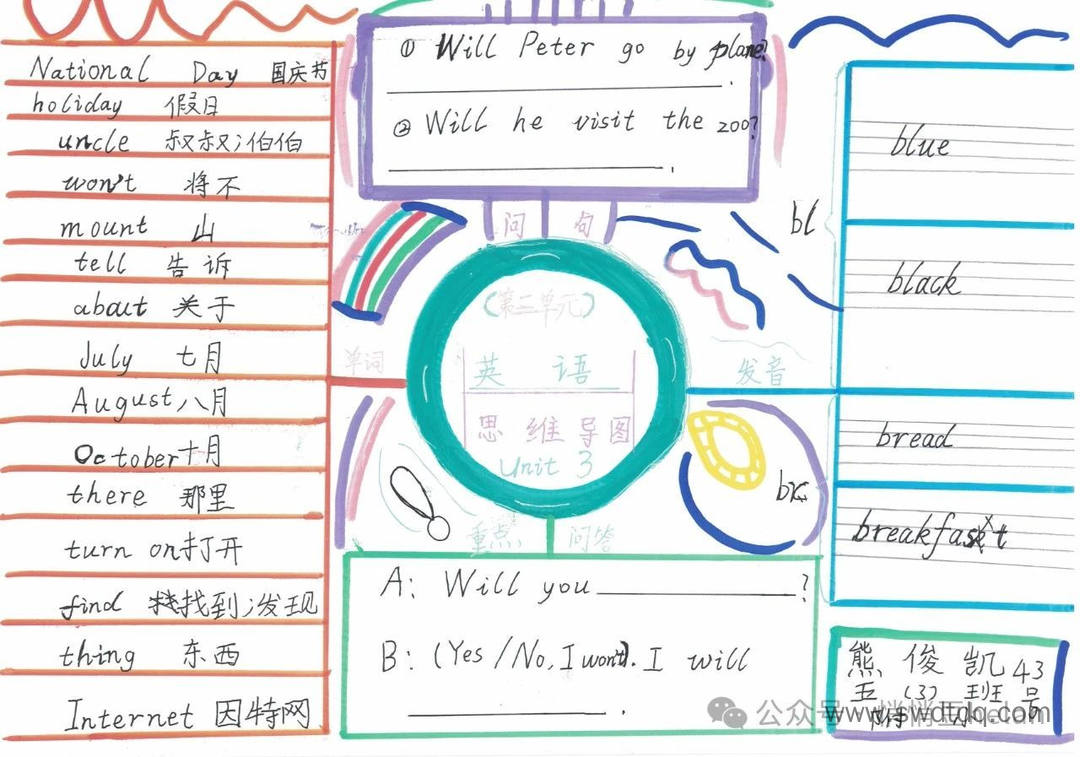 National Day 国庆节
holiday 假日
uncle 叔叔;伯伯
won't 将不
mount 山
tell 告诉
about 关于
July 七月
August 八月
October 十月
there 那里
turn on 打开
find 找到;发现
thing 东西
Internet 因特网
① Will Peter go by plane?
② Will he visit the zoo?
问句
(第三单元)
英语
思维导图
Unit 3
单词
发音
重点 问答
A: Will you ?
B: (Yes / No, I won't). I will
.
bl
blue
black
br
bread
breakfast
熊俊凯 43
五(3)班 号
公众号
www.swdtdq.com